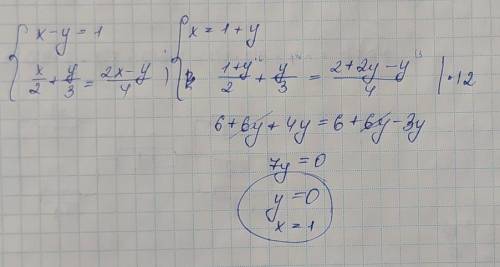 { x-y=1 ; { x=1+y
{ x/2 + y/3 = (2x-y)/4 ; { (1+y)/2 + y/3 = (2+2y-y)/4 | ·12
6+6y+4y=6+6y-3y
7y=0
y=0
x=1